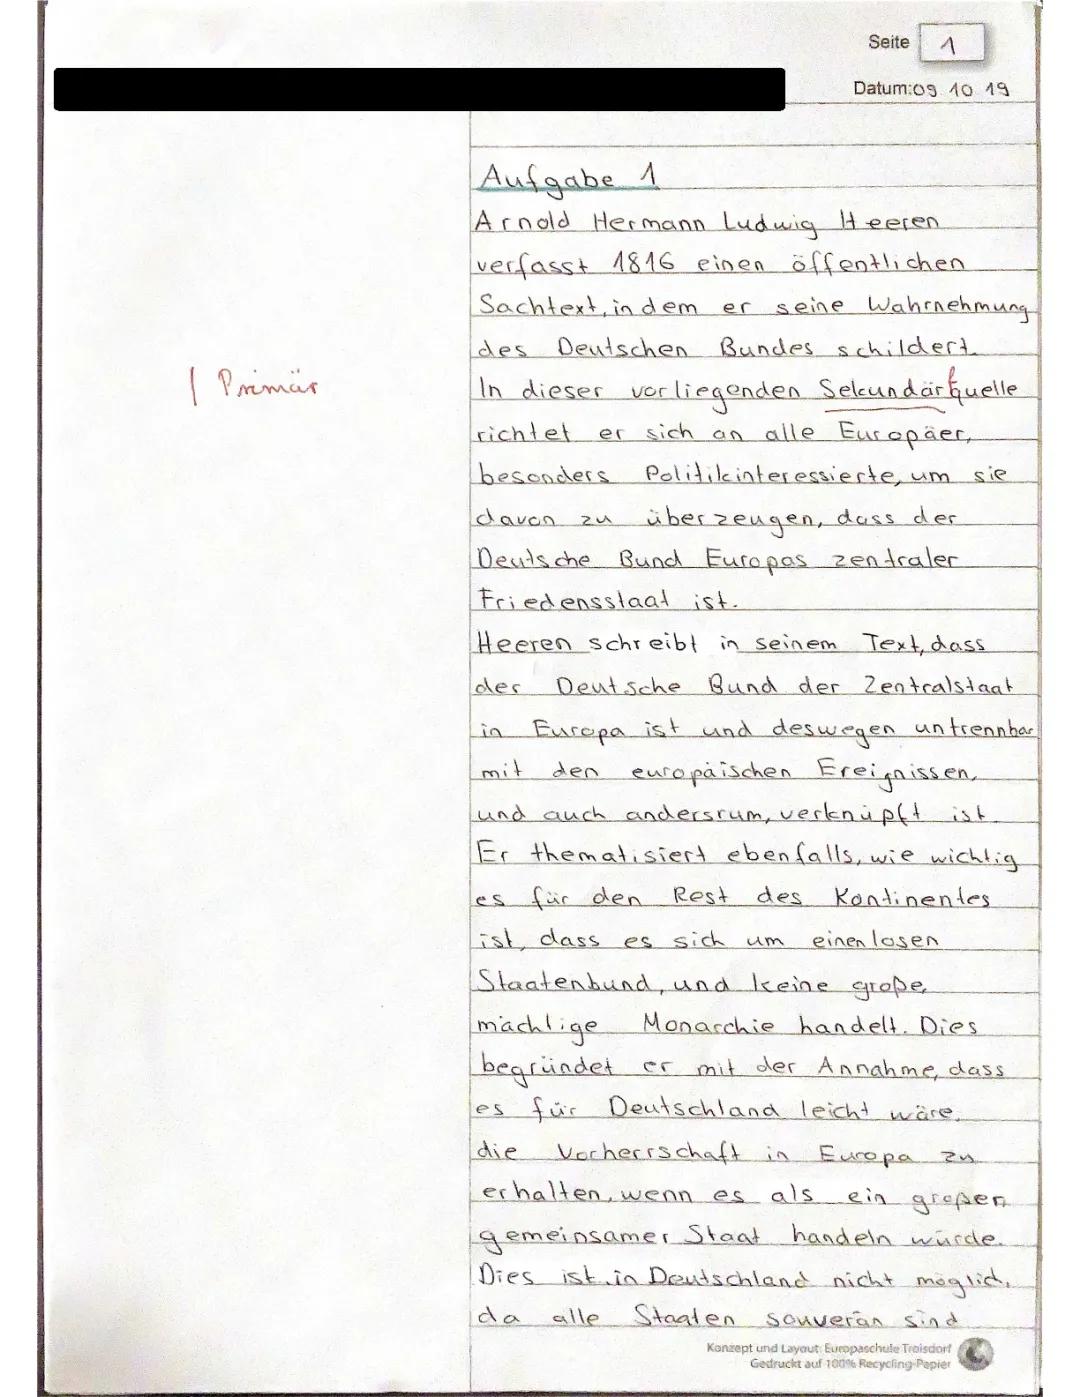 Seite 1
Datum:09 10 19
Aufgabe 1
Arnold Hermann Ludwig Heeren
verfasst 1816 einen öffentlichen
Sachtext, in dem er seine Wahrnehmung
des Deutschen Bundes schildert.
| Primär
In dieser vorliegenden Sekundärquelle
richtet er sich an alle Europäer,
besonders Politikinteressierte, um sie
davon zu überzeugen, dass der
Deutsche Bund Europas zentraler
Friedensstaat ist.
Heeren schreibt in seinem Text, dass
der Deutsche Bund der Zentralstaat
in Europa ist und deswegen untrennbar
mit den europäischen Ereignissen,
und auch andersrum, verknüpft ist.
Er thematisiert ebenfalls, wie wichtig
es für den Rest des Kontinentes
ist, dass es sich um einen losen
Staatenbund, und keine große,
mächtige Monarchie handelt. Dies
begründet er mit der Annahme, dass
es für Deutschland leicht wäre,
die Vorherrschaft in Europa zu
erhalten, wenn es als ein großer,
gemeinsamer Staat handeln würde.
Dies ist in Deutschland nicht möglich,
da alle Staaten souverän sind
Konzept und Layout: Europaschule Troisdorf
Gedruckt auf 100% Recycling-Papier